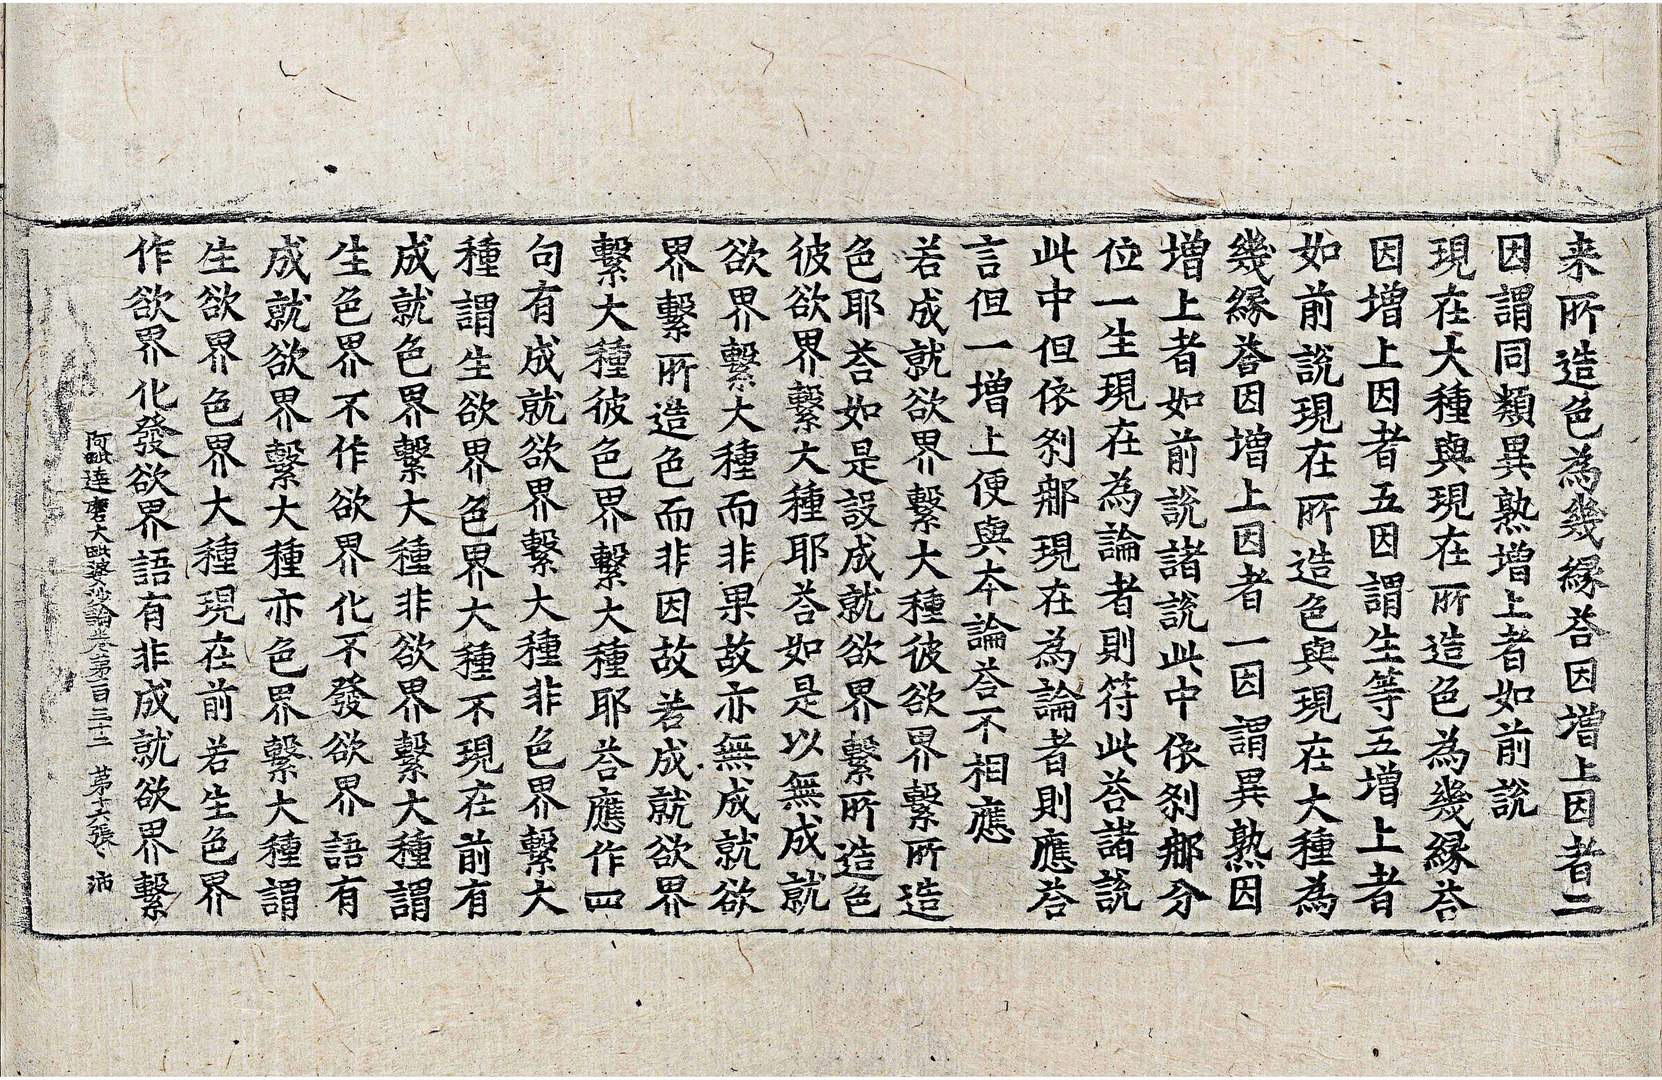 来所造色為幾縁荅因增上因者二
因謂同類異熟增上者如前說
現在大種與現在所造色為幾縁荅
因增上因者五因謂生等五增上者
如前說現在所造色與現在大種為
幾縁荅因增上因者一因謂異熟因
增上者如前說諸說此中依刹那分
位一生現在為論者則符此荅諸說
此中但依刹那現在為論者則應荅
言但一增上便與本論荅不相應
若成就欲界繫大種彼欲界繫所造
色耶荅如是設成就欲界繫所造色
彼欲界繫大種耶荅如是以無成就
欲界繫大種而非果故亦無成就欲
界繫所造色而非因故若成就欲界
繫大種彼色界繫大種耶荅應作四
句有成就欲界繫大種非色界繫大
種謂生欲界色界大種不現在前有
成就色界繫大種非欲界繫大種謂
生色界不作欲界化不發欲界語有
成就欲界繫大種亦色界繫大種謂
生欲界色界大種現在前若生色界
作欲界化發欲界語有非成就欲界繫
阿毗達磨大毗婆沙論卷第一百三十二 第十六張 沛